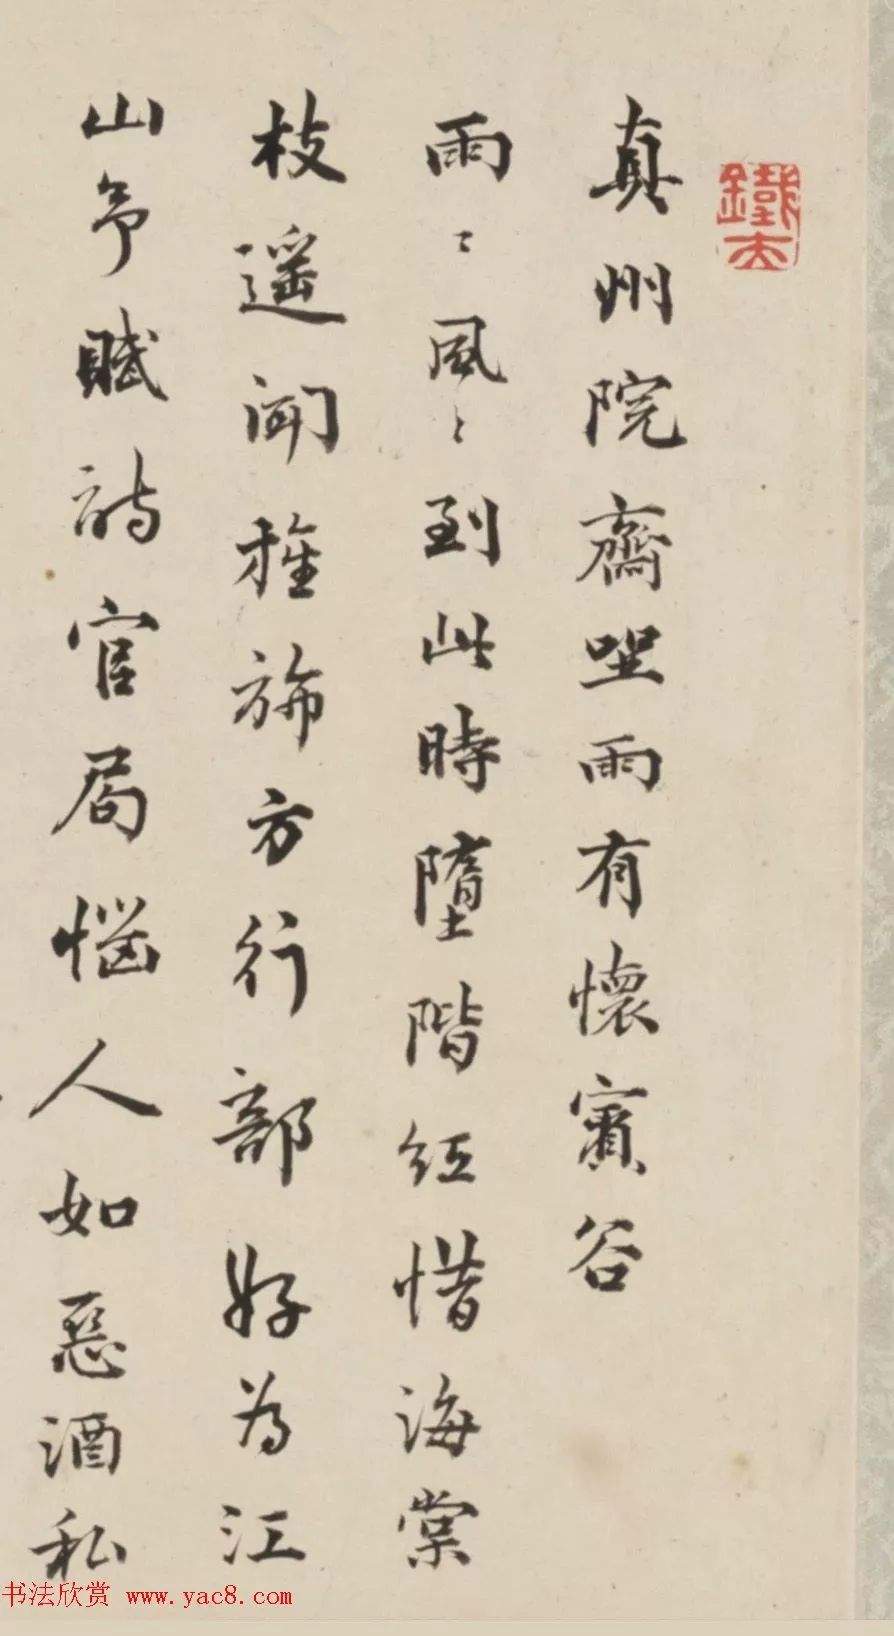 鐵夫
真州院齋坐雨有懷賓谷
雨〻風〻到此時墮階紅惜海棠
枝遥聞旌斾方行部好為江
山予賦詩官局惱人如惡酒私
书法欣赏 www.yac8.com